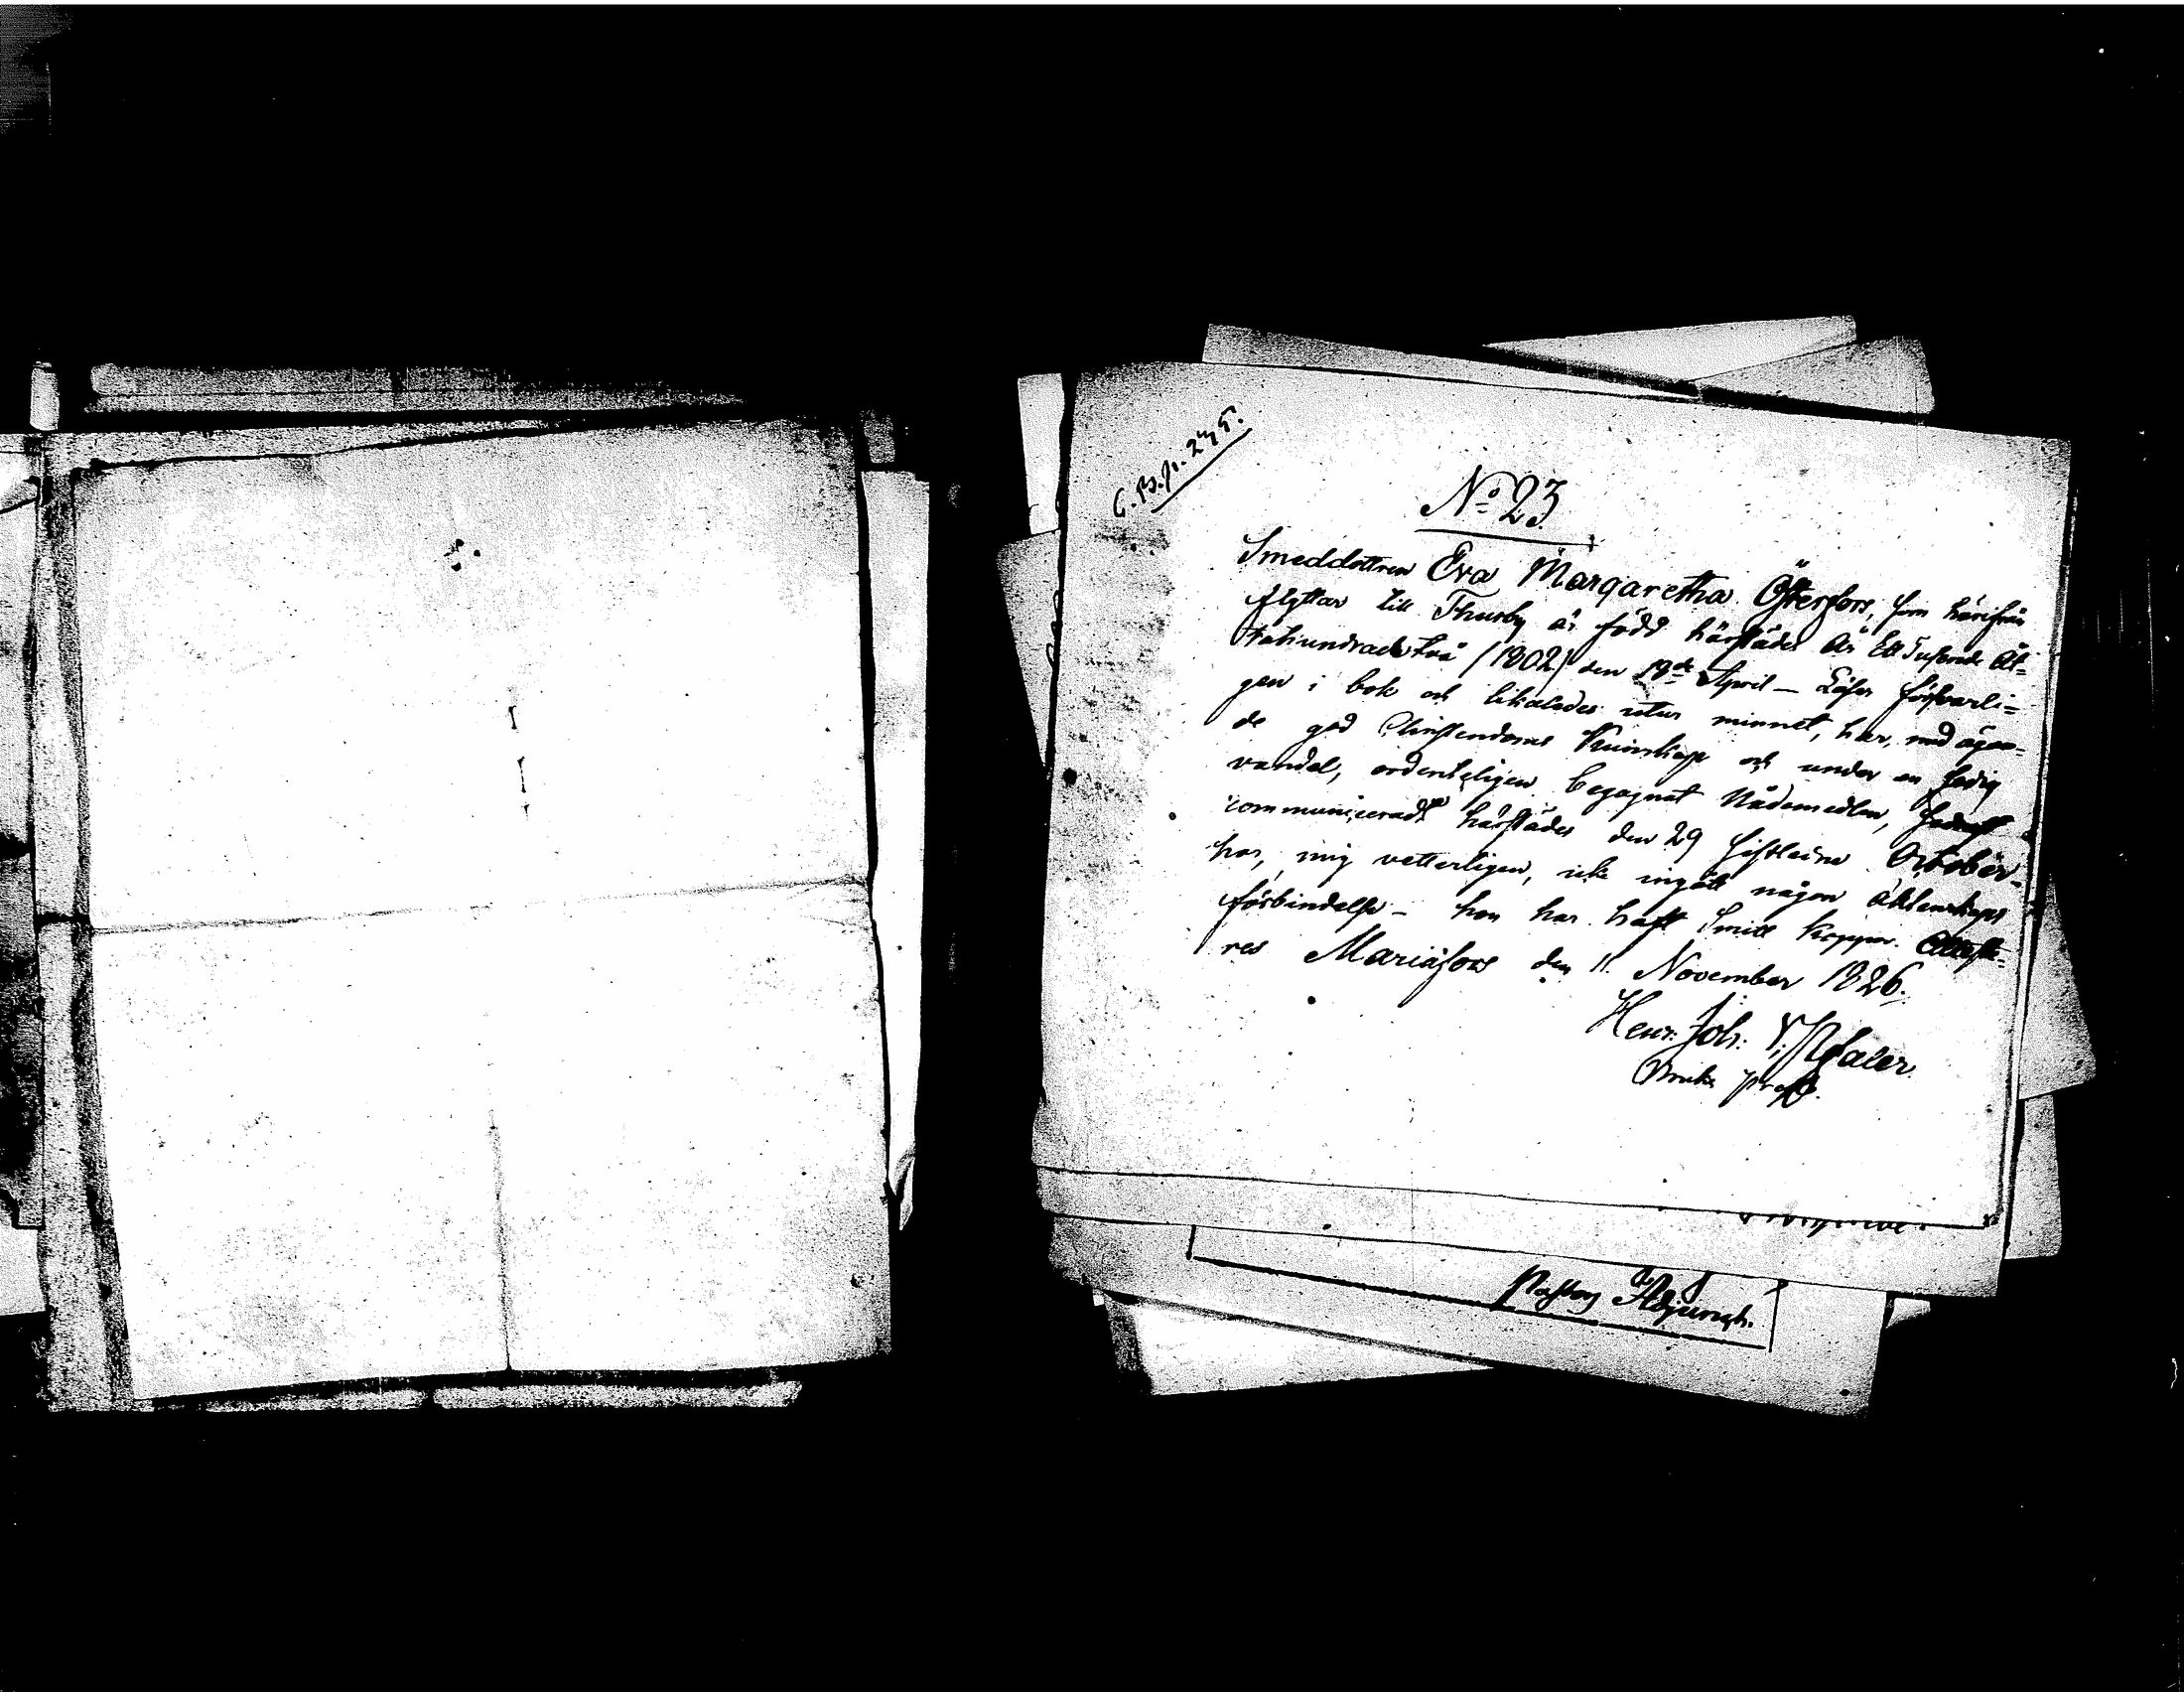 C.B.p. 275.
No 23
Smeddottren Eva Margaretha Österfors, som härifrån
flyttar till Thusby är född härstädes År Ett Tusende Åt-
tahundrade två /1802/ den 18de April — Läser försvarli-
gen i bok och likaledes utur minnet, har, med ägan-
de god Christendoms Kunskap och under en sedig
vandel, ordenteligen begagnat Nådemedlen, senast
communiceradt härstädes den 29 sistledne October,
har, mig vetterligen, icke ingått någon Äktenskaps
förbindelse — hon har haft Smitt Koppor. Atteste-
res Mariæfors den 11 November 1826.
Henr: Joh:
Bruks Pred.